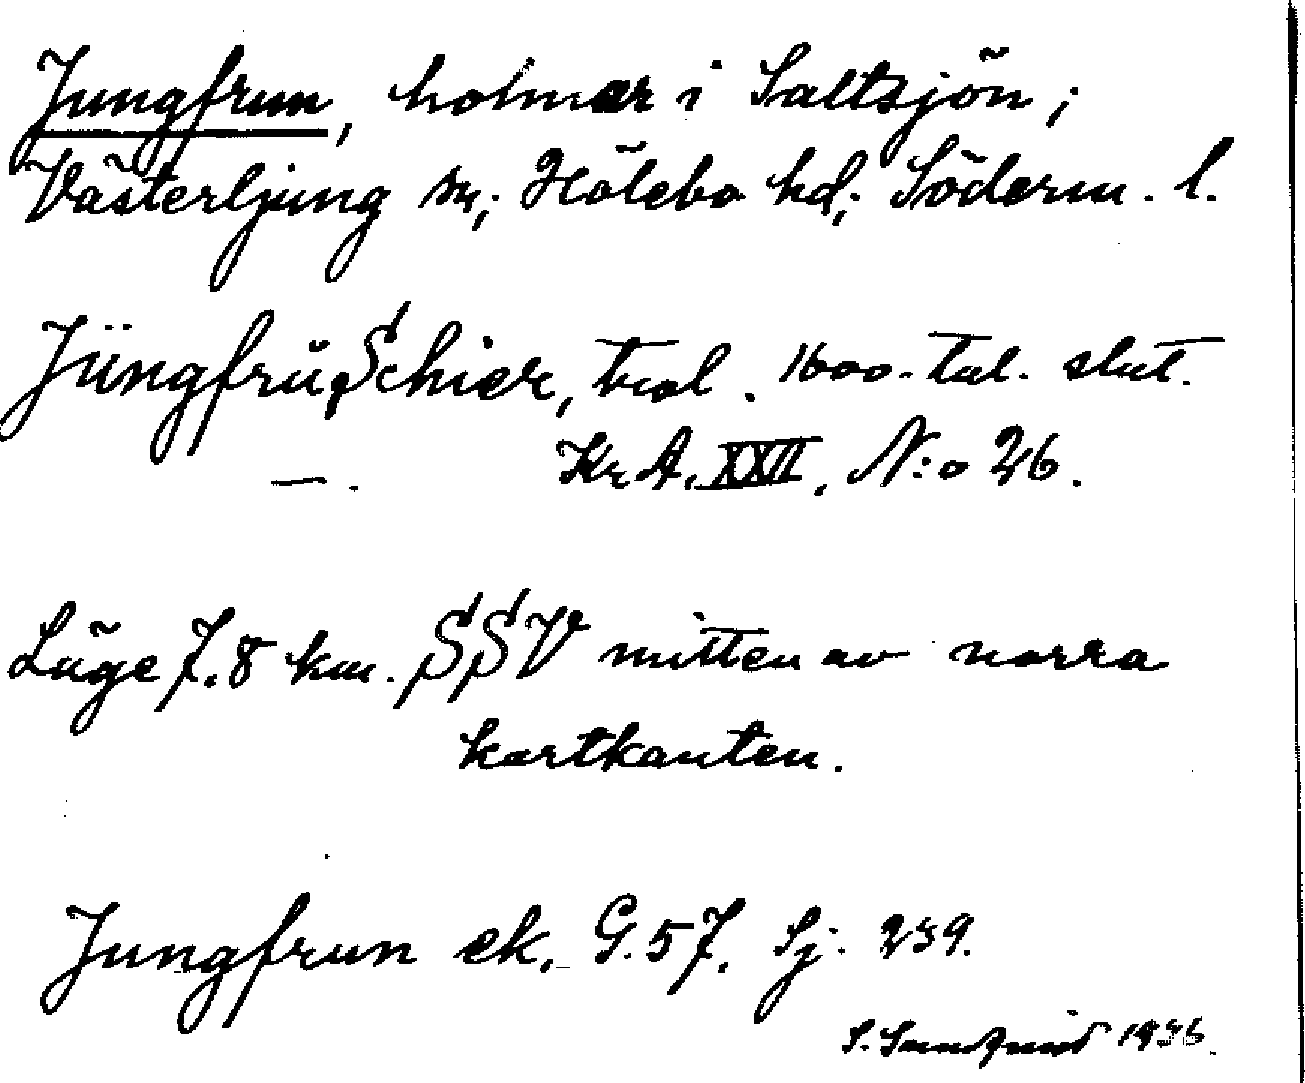 Jungfrun, holmar i Saltsjön;
Västerljung sn; Hölebo hd; Söderm. l.
Jüngfrŭ Schier, trol. 1600-tal. slut.
—. Kr. A. XXII, N:o 26.
Läge 7.8 km. SSV mitten av norra
kartkanten.
Jungfrun ek. G. 57. Sj. 239.
S. Sundqvist 1936.